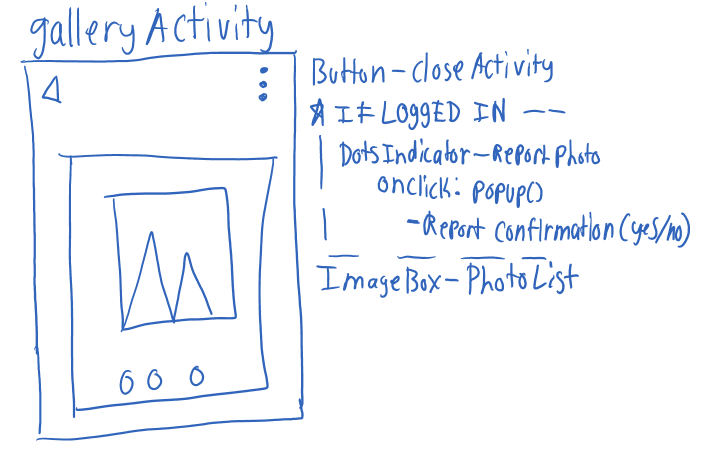 galleryActivity
Button-closeActivity
* IF LOGGED IN --
DotsIndicator-Report Photo
onclick: POPUP()
-Report Confirmation(yes/no)
ImageBox-PhotoList